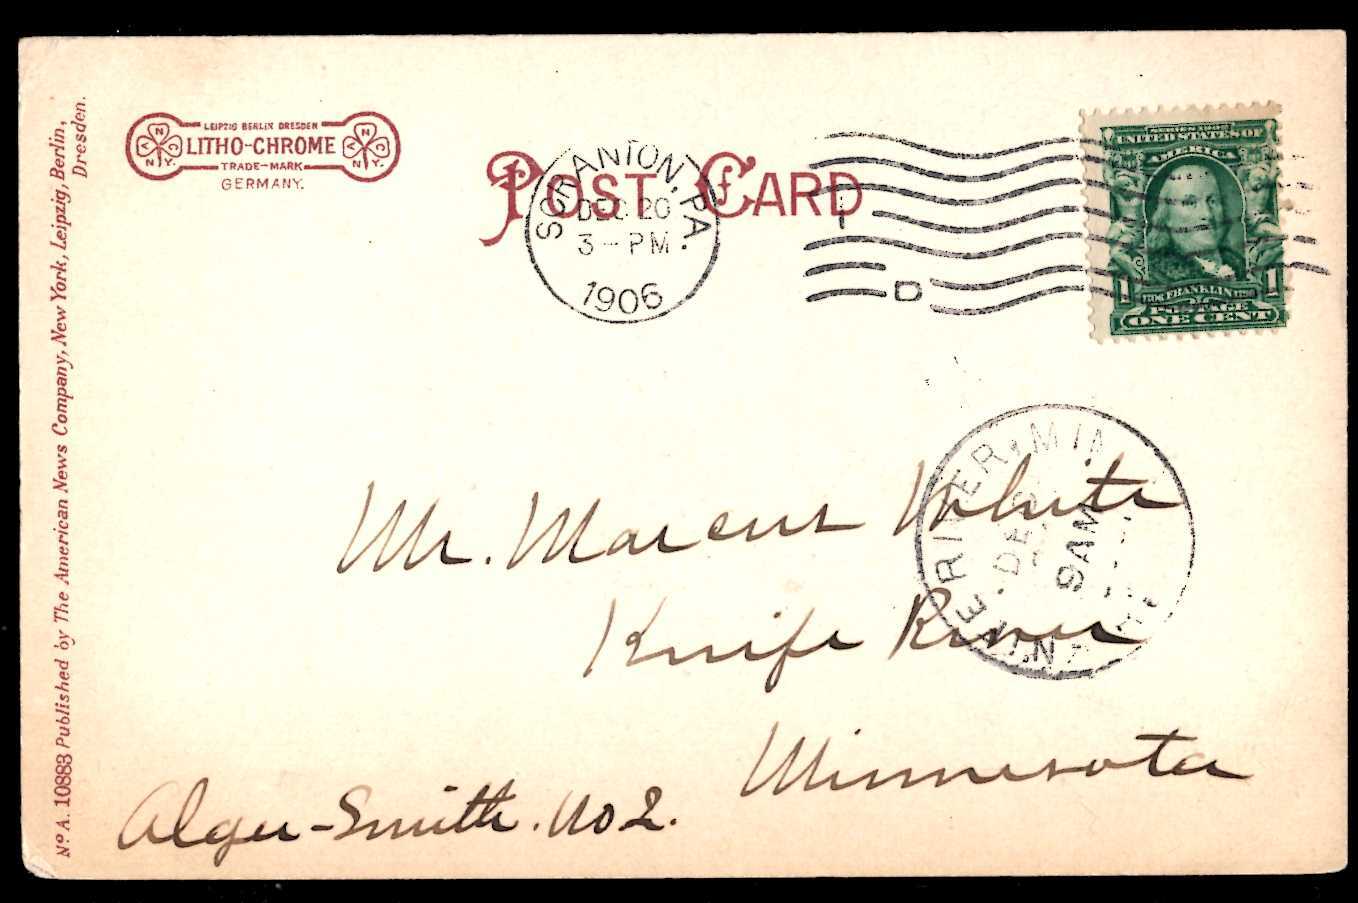 LEIPZIG BERLIN DRESDEN
LITHO-CHROME
TRADE-MARK
GERMANY.
N
Y
C
POST CARD
SCRANTON, PA.
DEC 20
3-PM
1906
D
SERIES 1902
UNITED STATES OF
AMERICA
1706 FRANKLIN 1790
1 POSTAGE 1
ONE CENT
KNIFE RIVER, MIN
DE
9AM
Mr. Marcus White
Knife River
Minnesota
Alger-Smith. No 2.
Nº A. 10883 Published by The American News Company, New York, Leipzig, Berlin,
Dresden.